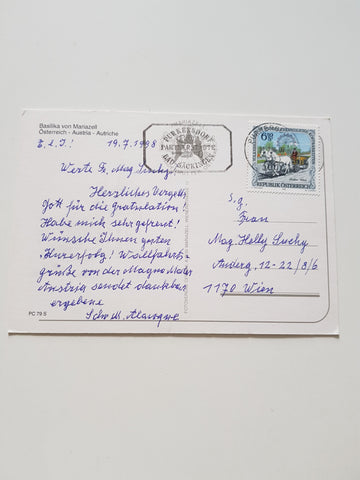 Basilika von Mariazell
Österreich - Austria - Autriche
19.7.1998
Werte Fr. Mag. Suchy!
Herzliches Vergelts
Gott für die Gratulation!
Habe mich sehr gefreut!
Wünsche Ihnen guten
Kurerfolg! Wallfahrts-
grüße von der Magna Mater
Austria sendet dankbar
ergebene
Schw. M.
PC 79 5
PURKERSDORF
BAD SÄCKINGEN
6
REPUBLIK ÖSTERREICH
S. g.
Frau
Mag. Helly Suchy
12-22/8/6
1170 Wien